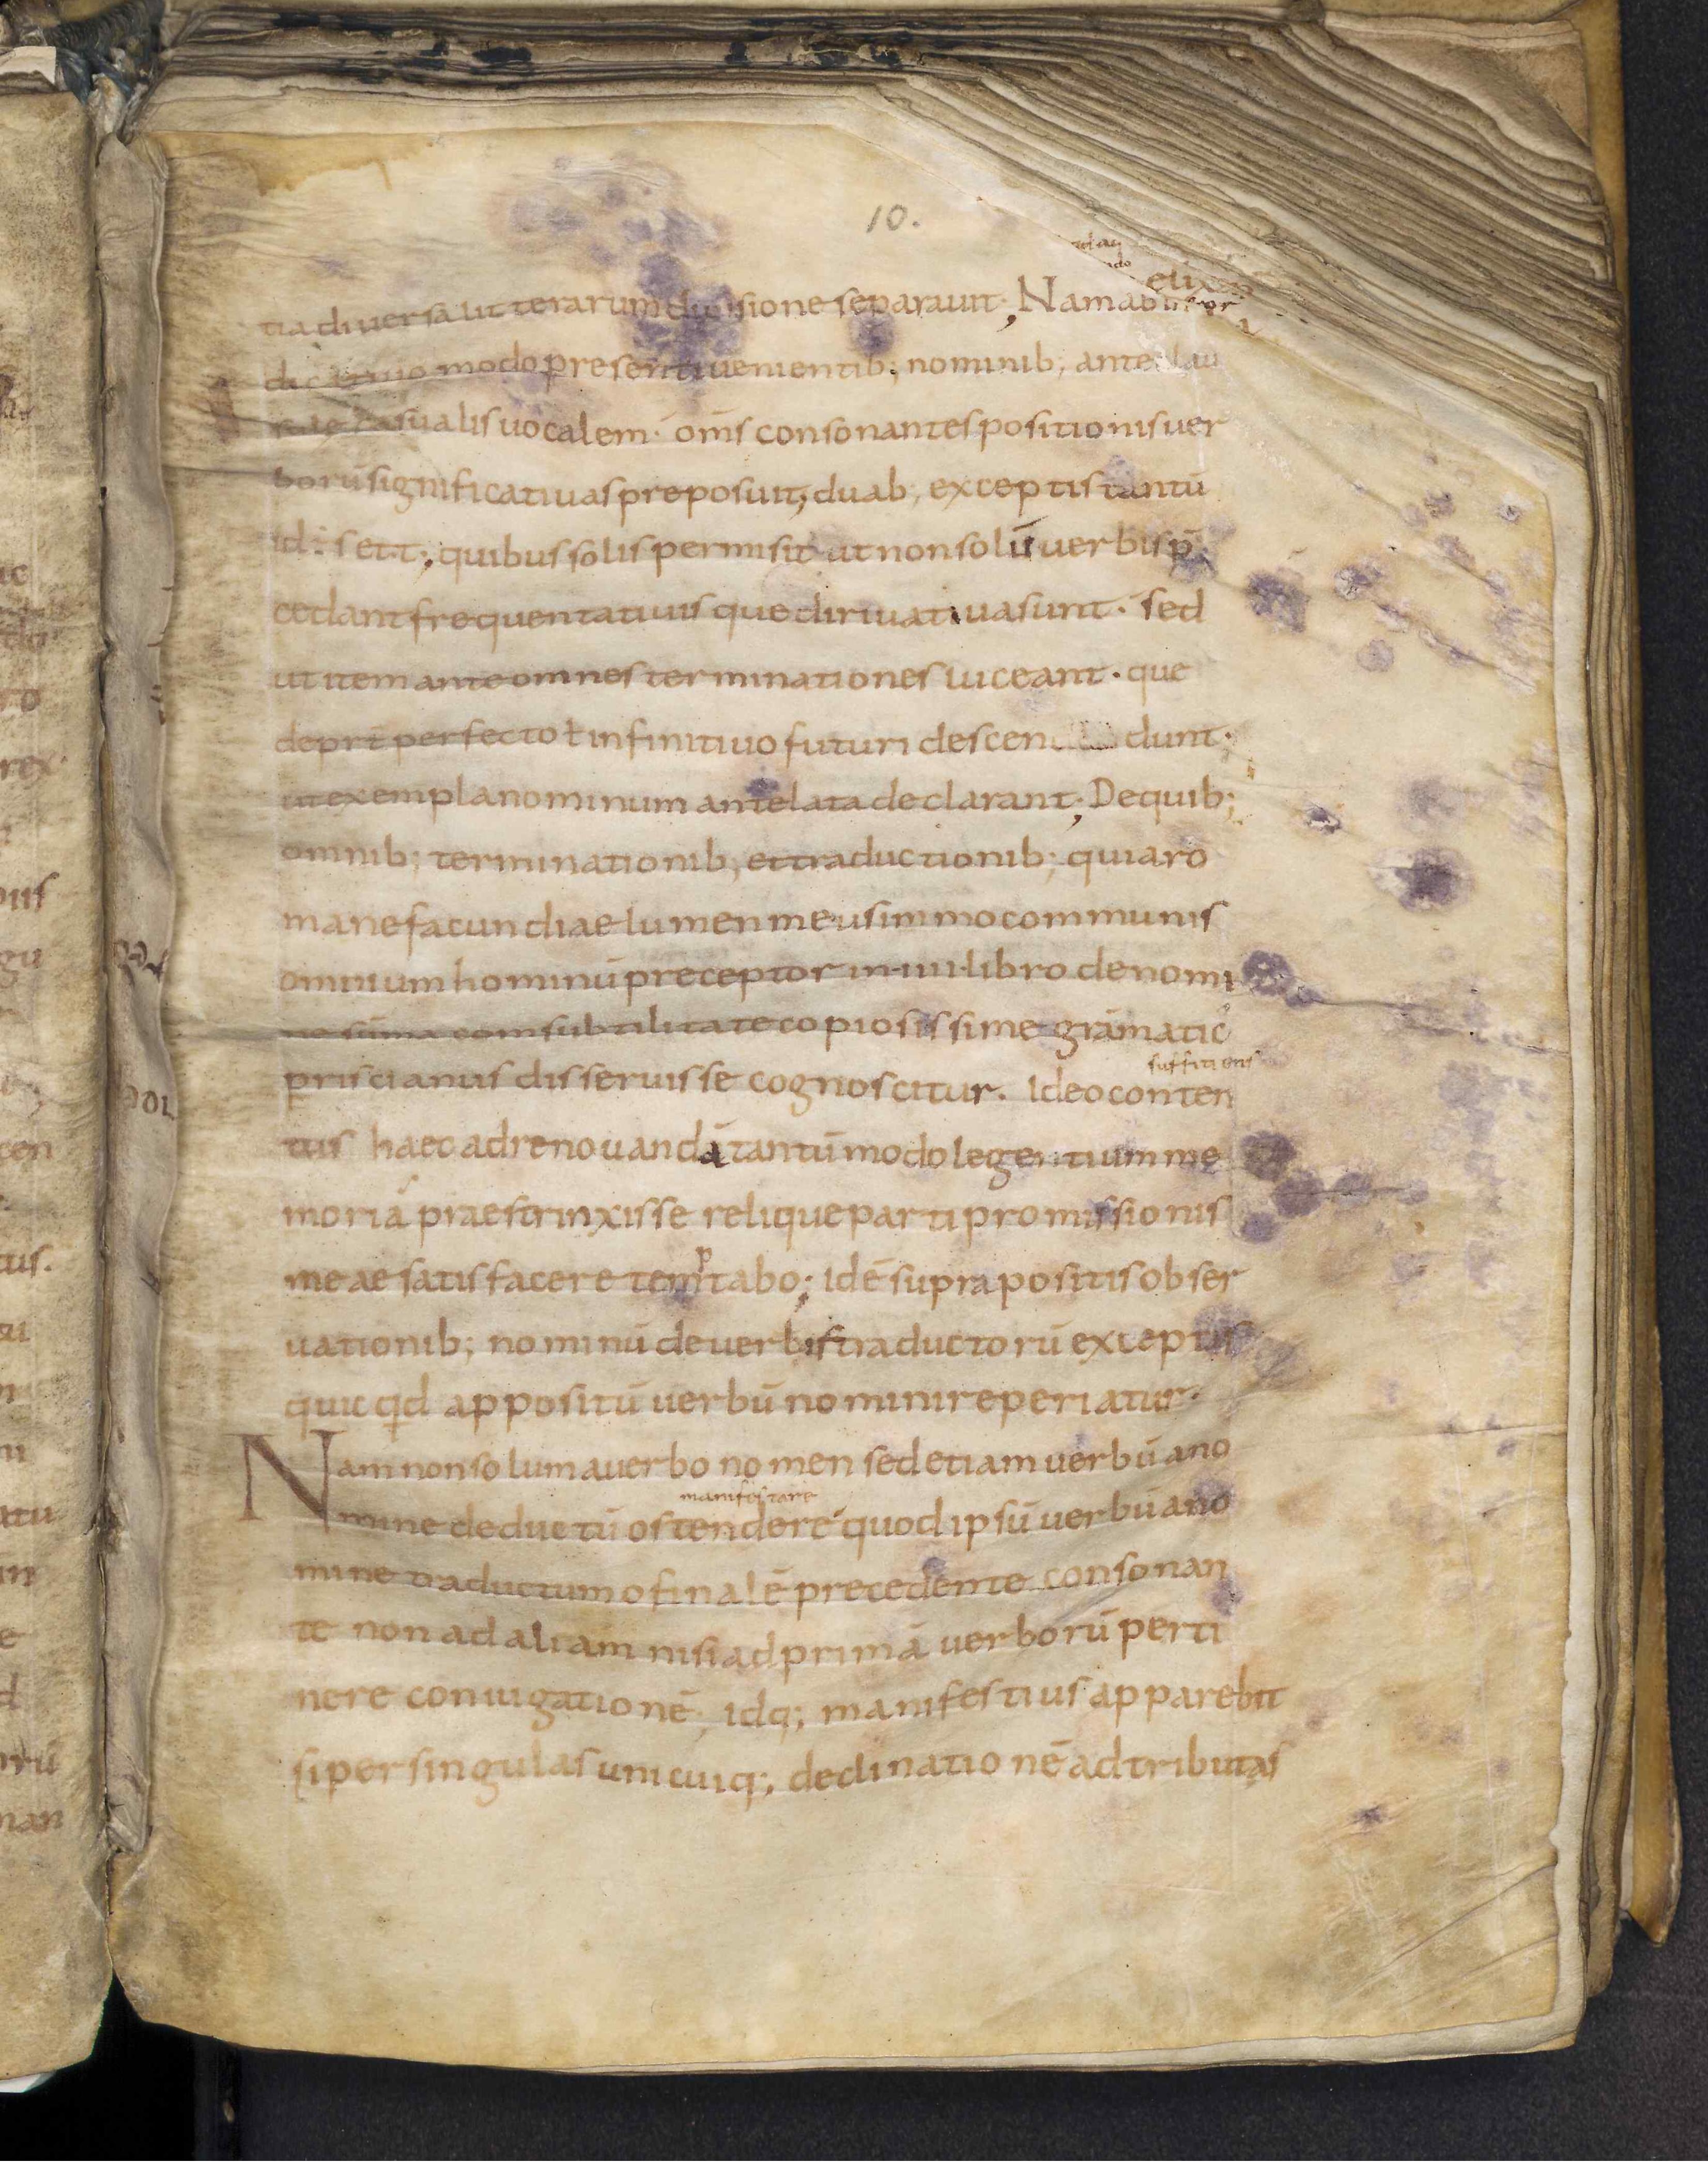 10.
elixas
tia diuersa litterarum diuisione separauit; Nam
modo presenti uenientib; nominib; ante
casualis uocalem· om̄s consonantes positionis uer
borū significatiuas preposuit, duab; exceptis tantū
id· s et t; quibus solis permisit ut non solū uerbis p̄
cedant frequentatiuis que diriuatiua sunt· sed
ut item ante omnes terminationes luceant· que
de prt̄ perfecto ł infinitiuo futuri descen dunt·
ut exempla nominum antelata declarant; De quib;
omnib; terminationib; et traductionib; quia ro
mane facundiae lumen meus immo communis
omnium hominū preceptor in· iiii· libro de nomi
ne sūma com subtilitate copiosissime grāmatic᾿
suffitiens
priscianus disseruisse cognoscitur. Ideo conten
tus haec ad renouandā tantū modo legentium me
moriā praestrinxisse relique parti promissionis
p
meae satisfacere temtabo; idē supra positis obser
uationib; nominū de uerbis traductorū exceptis
quicqd appositū uerbū nomini reperiatur·
Nam non solum a uerbo nomen sed etiam uerbū a no
manifestare
mine deductū ostendere quod ipsū uerbū a no
mine traductum o finalē precedente consonan
te non ad aliam nisi ad primā uerborū perti
nere coniugationē· idq; manifestius apparebit
si per singulas unicuiq; declinationē adtributas